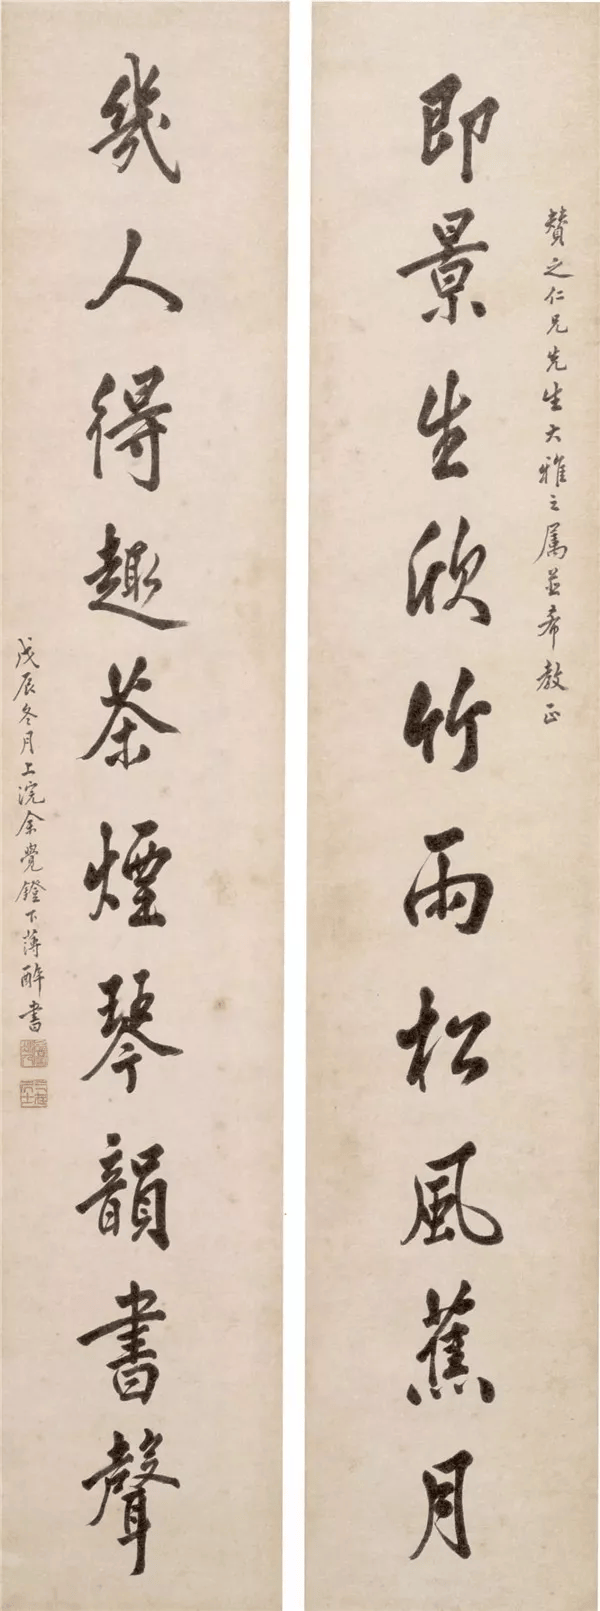 贊之仁兄先生大雅之属並希教正
即景生欣竹雨松風蕉月
幾人得趣茶煙琴韻書聲
戊辰冬月上浣余覺鐙下薄醉書